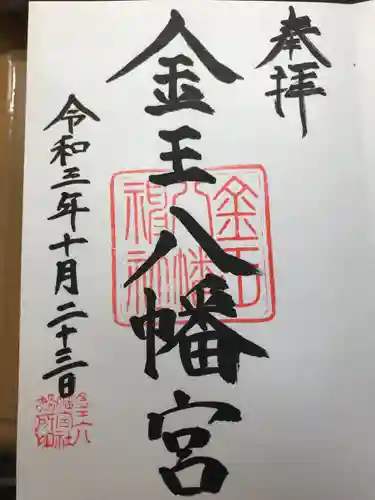 奉拝
金王八幡宮
金王八幡神社
令和三年十月二十三日
金王八
幡宮社
務所印